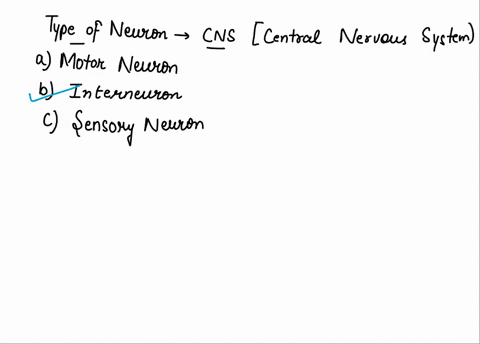 Type of Neuron → CNS [Central Nervous System)
a) Motor Neuron
b) Interneuron
c) Sensory Neuron